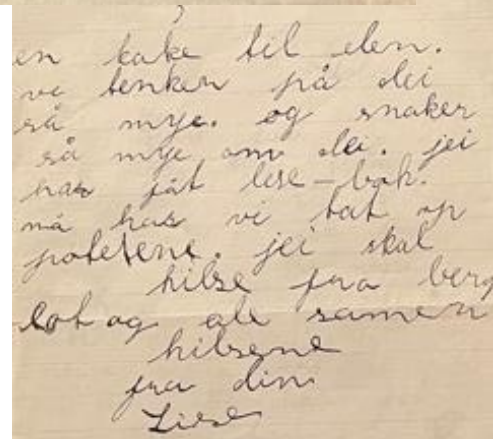 en kake til den.
vi tenker på dei
så mye. og snaker
så mye om dei. jei
har fåt lese-bok.
nå har vi tat op
potetene. jei skal
hilse fra berg
lot og ale samen
hilsene
fra din
Lise